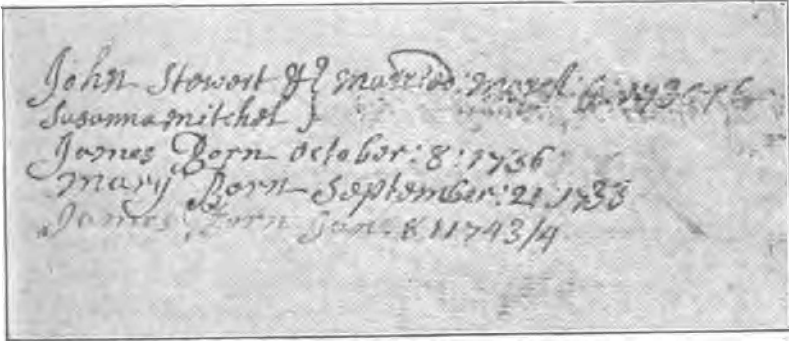 John Stewort & } married: march: 6: 173
Susanna mitchel }
James Born october: 8: 1736
Mary Born September: 21: 1738
James: Born Jan: 8 1743/4